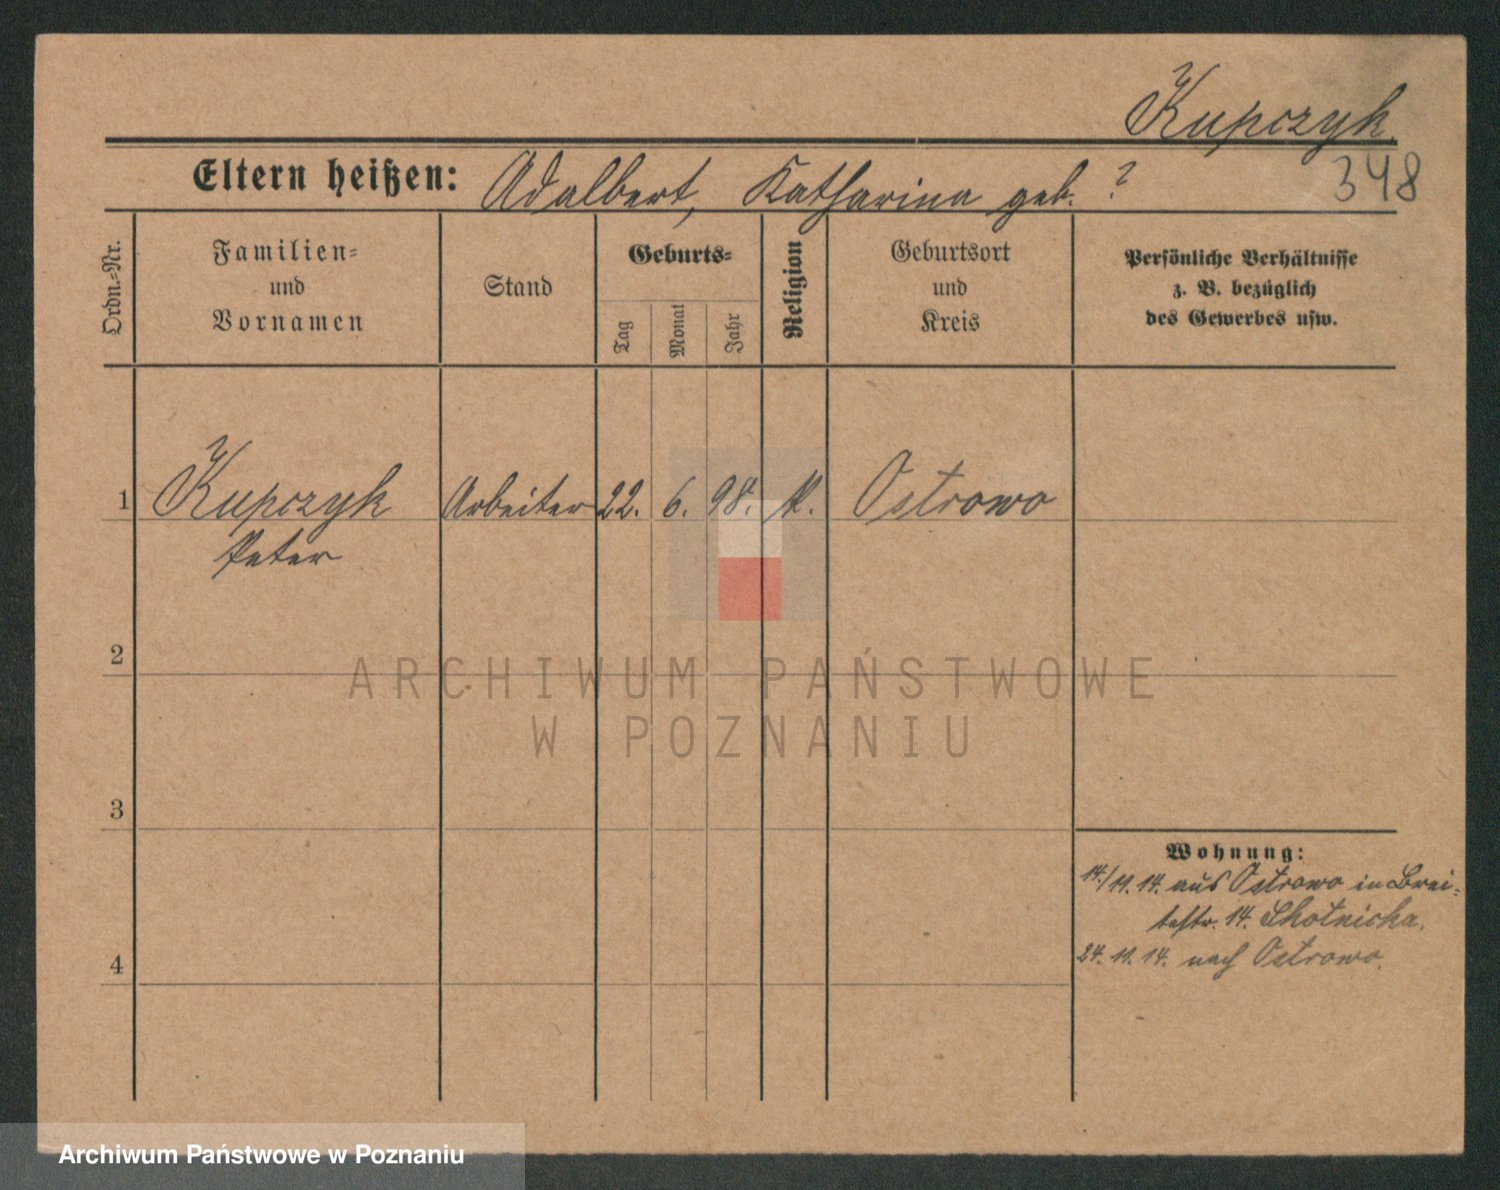 Kupczyk.
348
Eltern heißen: Adalbert, Katharina geb. ?
Ordn.=Nr.
Familien=
und
Vornamen
Stand
Geburts=
Tag
Monat
Jahr
Religion
Geburtsort
und
Kreis
Persönliche Verhältnisse
z. B. bezüglich
des Gewerbes usw.
1 Kupczyk Arbeiter 22. 6. 98. k. Ostrowo
Peter
2
3
4
Wohnung:
14./11.14. aus Ostrowo in Brei-
testr. 14. Skotnicka.
24.11.14. nach Ostrowo.
ARCHIWUM PAŃSTWOWE
W POZNANIU
Archiwum Państwowe w Poznaniu